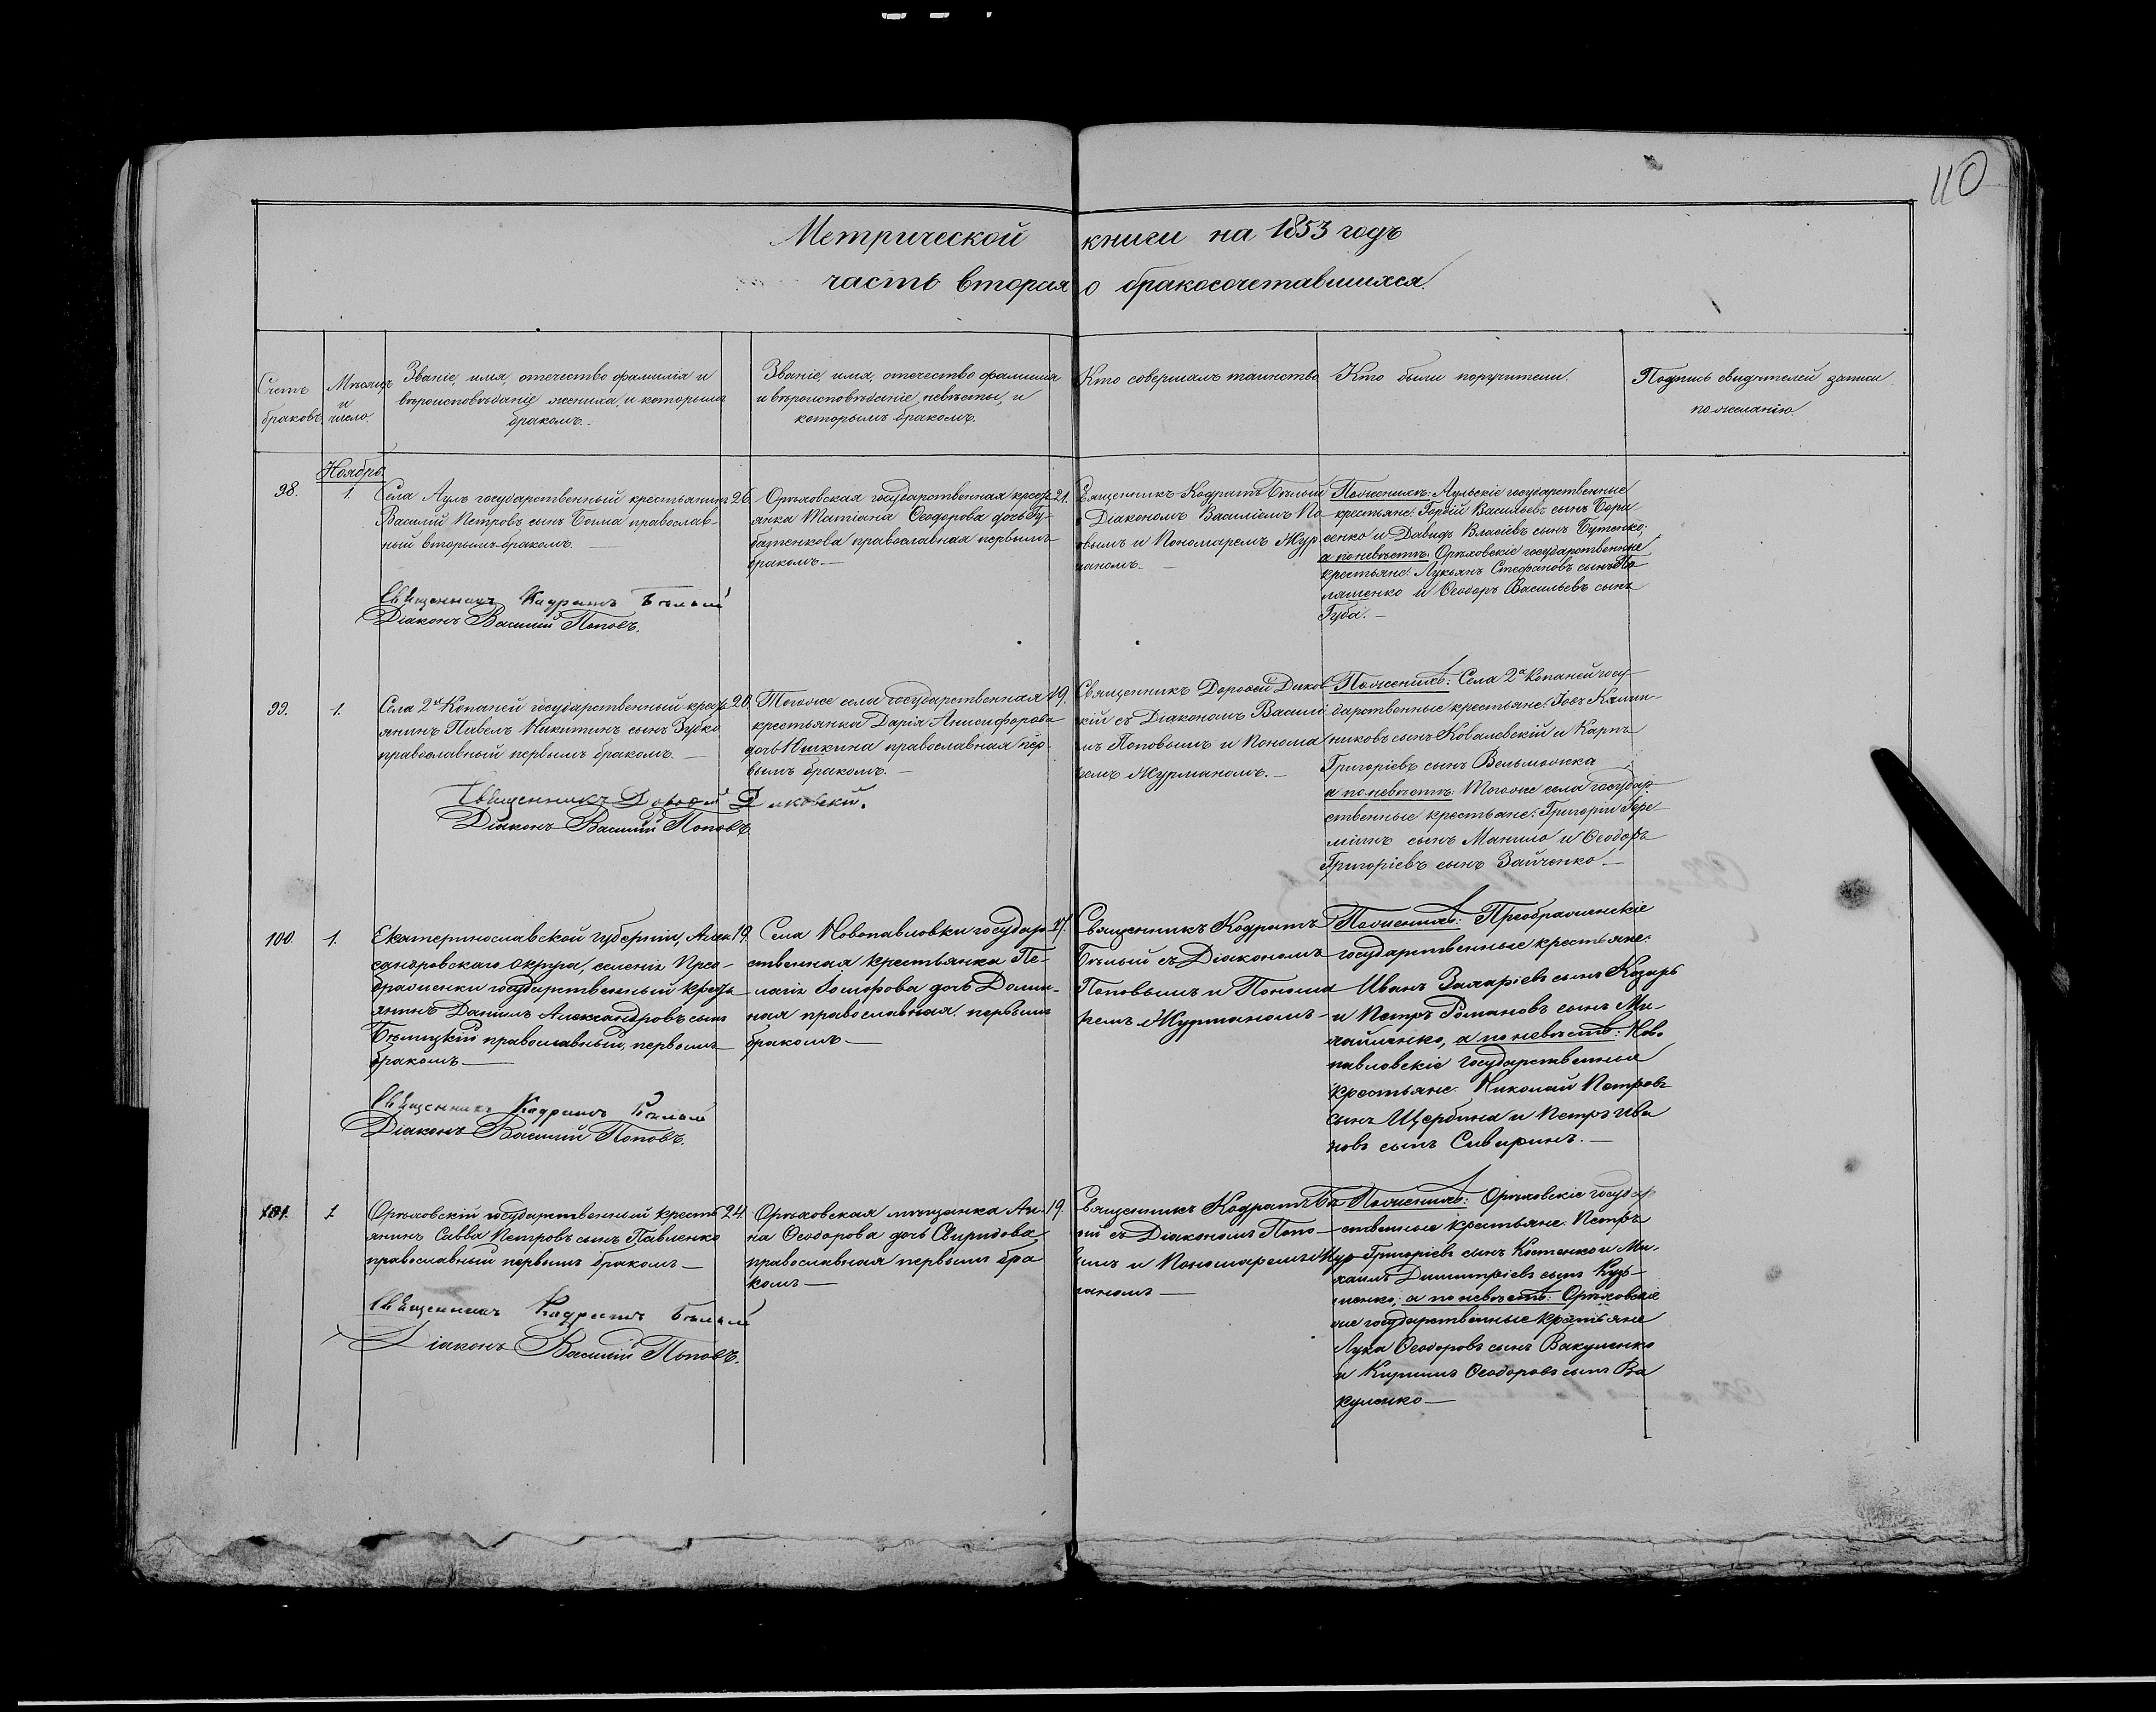 110
Метрической книги на 1853 годъ
часть вторая о бракосочетавшихся.
Счетъ браковъ.
Мѣсяцъ и число.
Званіе, имя, отечество фамилія и
вѣроисповѣданіе жениха, и которымъ
бракомъ.
Званіе, имя, отечество фамилія
и вѣроисповѣданіе невѣсты, и
которымъ бракомъ.
Кто совершалъ таинство
Кто были поручители.
Подпись свидѣтелей записи
по желанію.
Ноябрь
98.
1.
Села Аулъ государственный крестьянинъ
Василій Петровъ сынъ Богма православ-
ный вторымъ бракомъ.
26.
Орѣховская государственная кресть-
янка Татіана Ѳеодорова дочь Гу-
батенкова православная первымъ
бракомъ.
21.
Священникъ Кодратъ Бѣлый
Діакономъ Василіемъ По-
овымъ и Пономаремъ Жур-
маномъ.
По женихѣ: Аульскіе государственные
крестьяне: Гордій Васильевъ сынъ Бори-
сенко и Давидъ Власіевъ сынъ Бутенко;
а по невѣстѣ: Орѣховскіе государственные
крестьяне: Лукьянъ Стефановъ сынъ По-
лященко и Ѳеодоръ Васильевъ сынъ
Губа.
Священникъ Кадратъ Бѣлый
Діаконъ Василій Поповъ.
99.
1.
Села 2хъ Копаней государственный кресть-
янинъ Павелъ Никитинъ сынъ Зубко
православный первымъ бракомъ.
20.
Тогоже села государственная
крестьянка Дарія Анисифорова
дочь Юшкина православная пер-
вымъ бракомъ.
19.
Священникъ Дороѳей Диков-
кій съ Діакономъ Василі-
мъ Поповымъ и Понома-
ремъ Журманомъ.
По женихѣ: Села 2хъ Копаней госу-
дарственные крестьяне: Іовъ Каллин-
никовъ сынъ Ковалевскій и Карпъ
Григоріевъ сынъ Вельможка
а по невѣстѣ: Тогоже села государ-
ственные крестьяне: Григорій Ере-
міинъ сынъ Манило и Ѳеодоръ
Григоріевъ сынъ Зайченко.
Священникъ Дороѳей Диковскій.
Діаконъ Василій Поповъ
100.
1.
Екатеринославской губерніи, Алек-
сандровскаго округа, селенія Прео-
браженки государственный кресть-
янинъ Даніилъ Александровъ сынъ
Бѣлицкій православный, первымъ
бракомъ
19.
Села Новопавловки государ-
ственная крестьянка Пе-
лагія дочь
ная православная первымъ
бракомъ
17.
Священникъ Кодратъ
Бѣлый съ Діакономъ
Поповымъ и Понома-
ремъ Журманомъ
По женихѣ: Преображенскіе
государственные крестьяне:
Иванъ Захаріевъ сынъ Козарь
и Петръ Романовъ сынъ Ми-
хайленко, а по невѣстѣ: Ново-
павловскіе государственные
крестьяне: Николай Петровъ
сынъ Щербина и Петръ Ива-
новъ сынъ Сивиринъ.
Священникъ Кадратъ Бѣлый
Діаконъ Василій Поповъ.
101.
1
Орѣховскій государственный кресть-
янинъ Савва Петровъ сынъ Павленко
православный первымъ бракомъ
24.
Орѣховская мѣщанка Ан-
на Ѳеодорова дочь Свиридова
православная первымъ бра-
комъ
19.
Священникъ Кодратъ Бѣ-
ый съ Діакономъ Попо-
вымъ и Пономаремъ Жур-
маномъ
По женихѣ: Орѣховскіе государ-
ственные крестьяне: Петръ
Григоріевъ сынъ Костенко и Ми-
хаилъ Димитріевъ сынъ
а по невѣстѣ: Орѣховскіе
государственные крестьяне
Лука Ѳеодоровъ сынъ Вакуленко
и Кириллъ Ѳеодоровъ сынъ Ва-
куленко
Священникъ Кадратъ Бѣлый
Діаконъ Василій Поповъ.